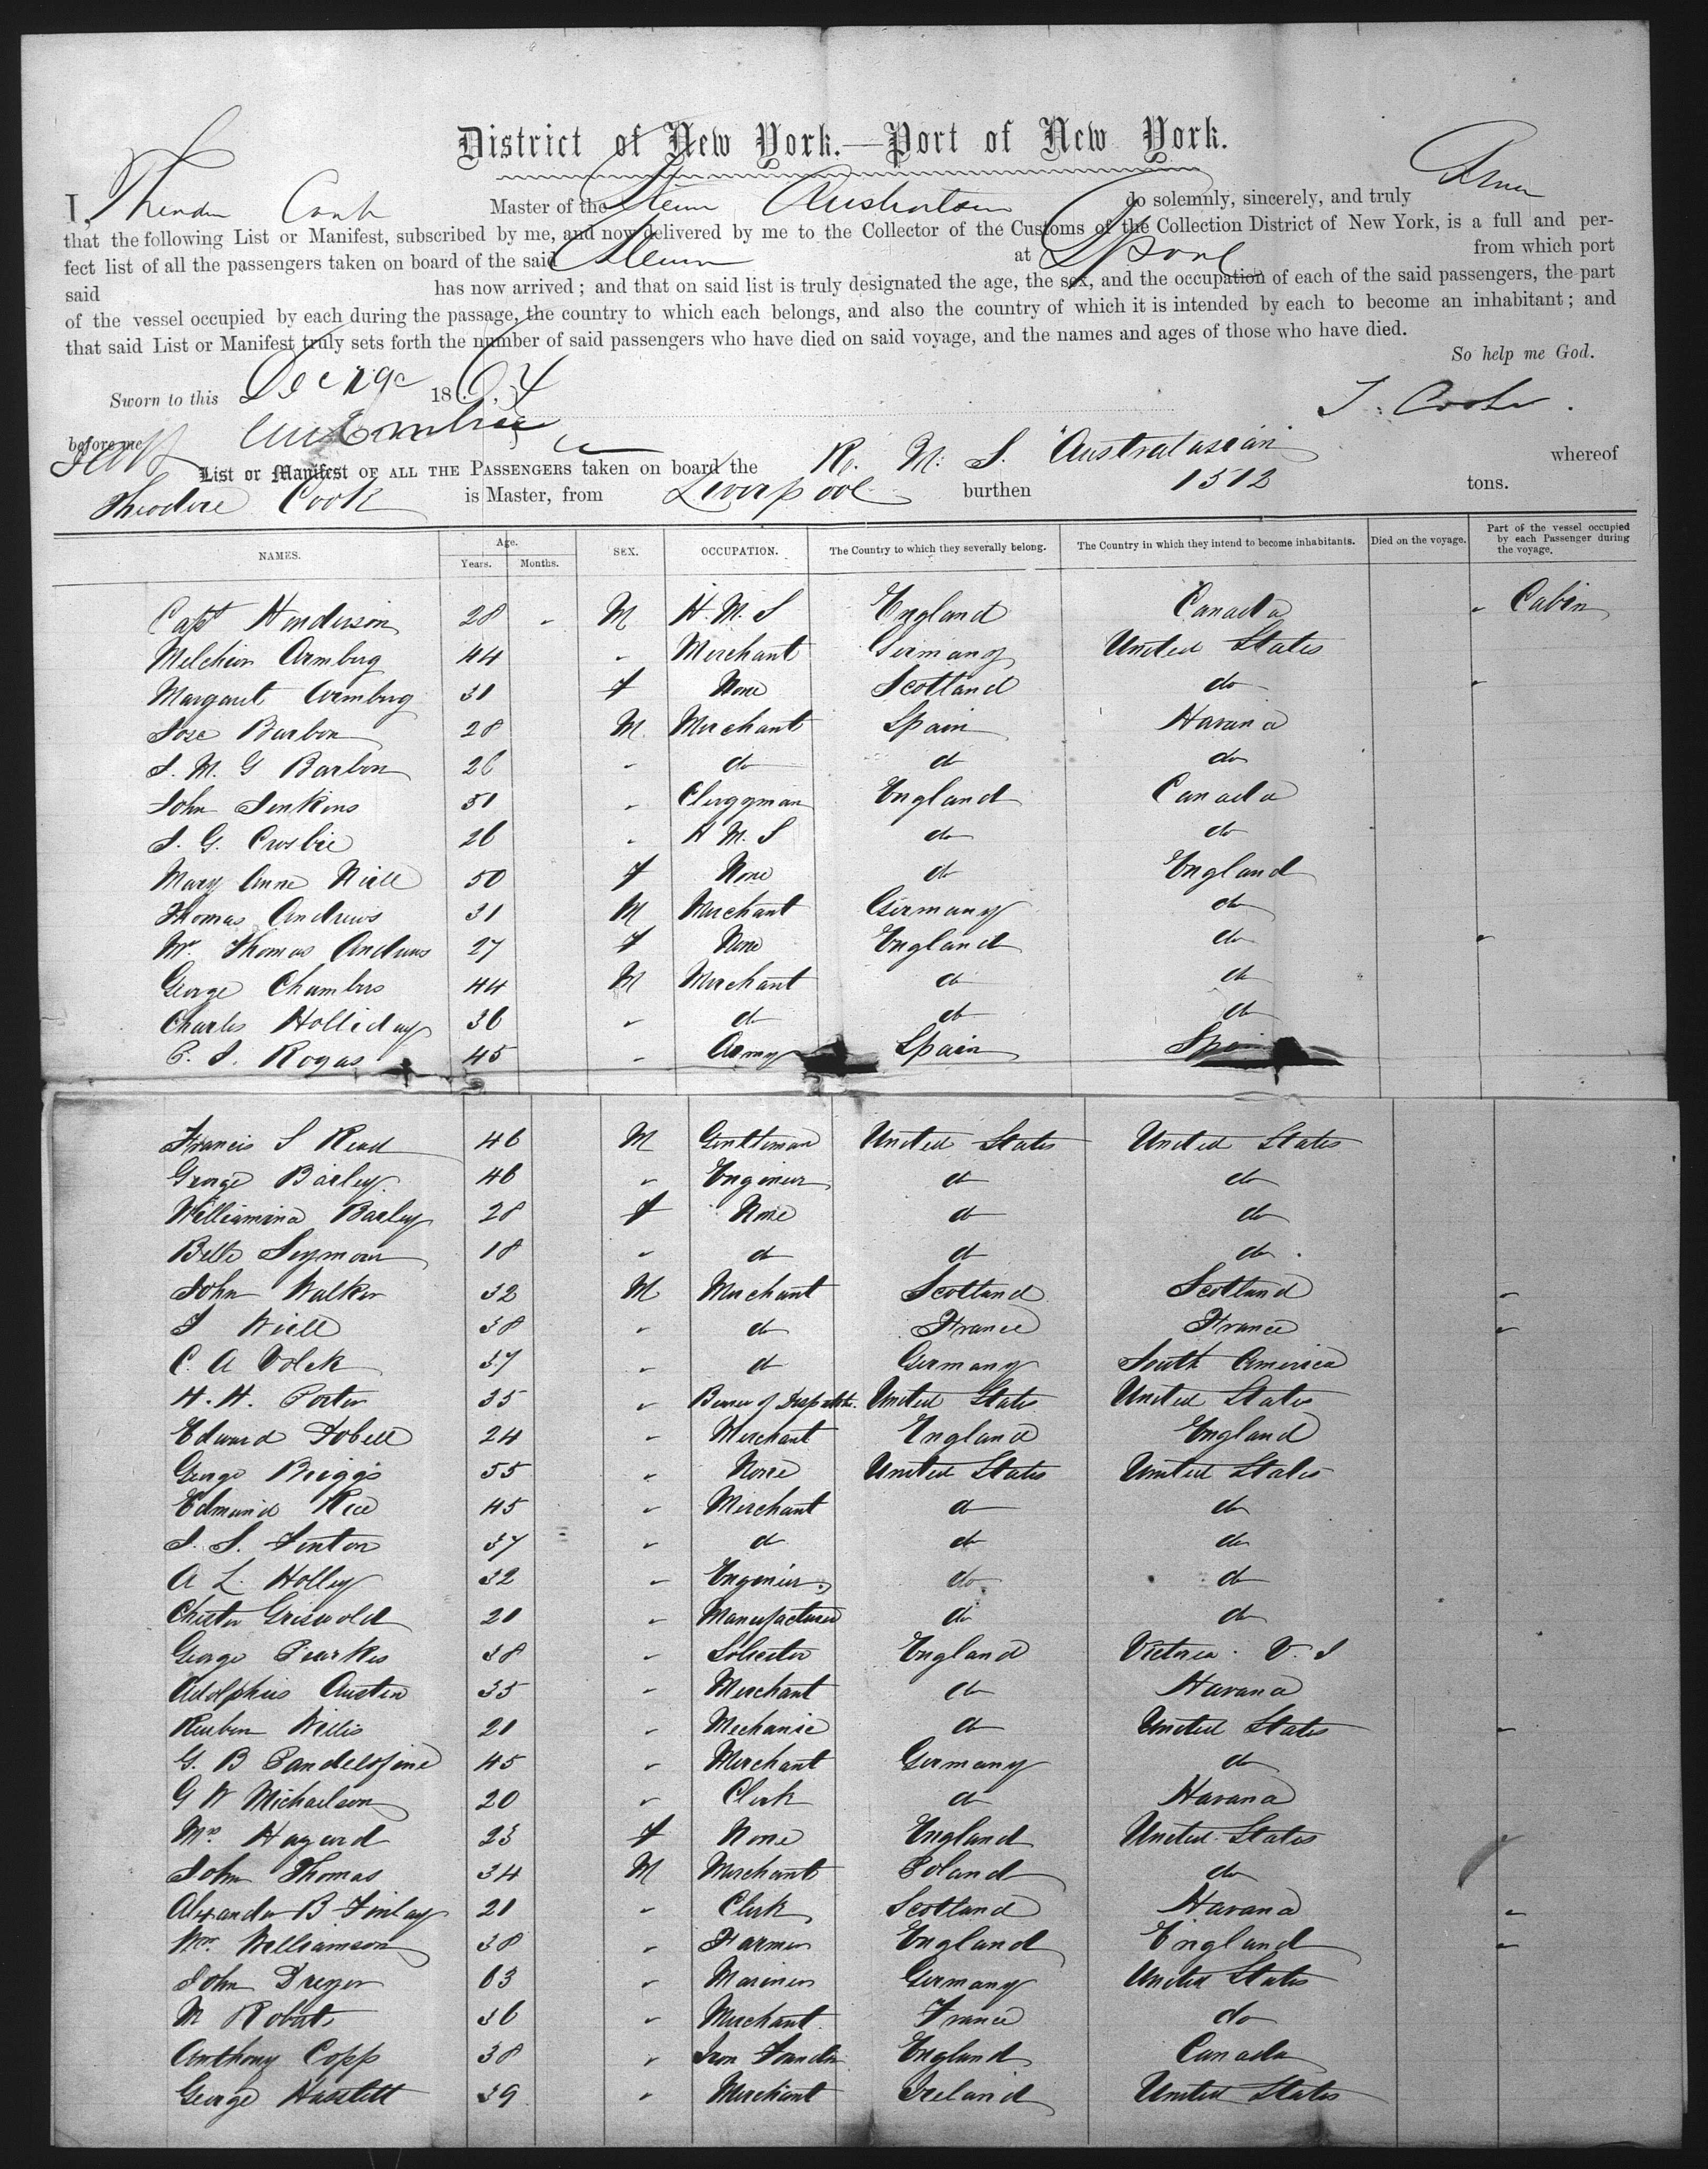 District of New York.—Port of New York.
I, Theodore Cook Master of the Steam Australasian do solemnly, sincerely, and truly Swear
that the following List or Manifest, subscribed by me, and now delivered by me to the Collector of the Customs of the Collection District of New York, is a full and per-
fect list of all the passengers taken on board of the said Steam at Lpool from which port
said has now arrived; and that on said list is truly designated the age, the sex, and the occupation of each of the said passengers, the part
of the vessel occupied by each during the passage, the country to which each belongs, and also the country of which it is intended by each to become an inhabitant; and
that said List or Manifest truly sets forth the number of said passengers who have died on said voyage, and the names and ages of those who have died.
So help me God.
Sworn to this Dec 1864 T. Cook.
before me
List or Manifest OF ALL THE PASSENGERS taken on board the R. M. S. "Australasian" whereof
Theodore Cook is Master, from Liverpool burthen 1512 tons.
NAMES. Age. Years. Months. SEX. OCCUPATION. The Country to which they severally belong. The Country in which they intend to become inhabitants. Died on the voyage. Part of the vessel occupied by each Passenger during the voyage.
Capt Henderson 28 - M H. M. S England Canada " Cabin
Melchior Armberg 44 " Merchant Germany United States
Margaret Armberg 31 F None Scotland do "
Jose Barbon 28 M Merchant Spain Havana
J. M. G Barbon 26 " do do do
John Jenkins 51 " Clergyman England Canada
J. G. Crosbie 26 " H M. S do do
Mary Anne Niell 50 F None do England
Thomas Andrews 31 M Merchant Germany do
Mrs Thomas Andrews 27 F None England do "
George Chambers 44 M Merchant do do
Charles Holliday 36 " do do do
C. J. Rogas 45 " Army Spain Spain
Francis S Read 46 M Gentleman United States United States
George Barley 46 " Engineer do do
Williamina Barley 28 F None do do
Belle Seymour 18 " do do do
John Walker 32 M Merchant Scotland Scotland "
J Weill 38 " do France France "
C. A Volck 37 " do Germany South America
H. H. Porter 35 " Bearer of Despatch. United States United States
Edward Tobell 24 " Merchant England England
George Briggs 55 " None United States United States
Edmund Rice 45 " Merchant do do
J. S. Fenton 37 " do do do
A L. Holley 32 " Engineer do do
Chester Griswold 20 " Manufacturer do do
George Pearkes 38 " Solicitor England Victoria V. I
Adolphus Austen 35 " Merchant do Havana
Reuben Willis 21 " Mechanic do United States "
G. B 45 " Merchant Germany do
G W Michaelson 20 " Clerk do Havana
Mrs Hagard 23 F None England United States "
John Thomas 34 M Merchant Poland do
Alexander B Finlay 21 " Clerk Scotland Havana "
Wm Williamson 38 " Farmer England England "
John Dreyer 63 " Mariner Germany United States
M Roberts 36 " Merchant France do
Anthony Copp 38 " Iron Founder England Canada
George Hasslett 39 " Merchant Ireland United States